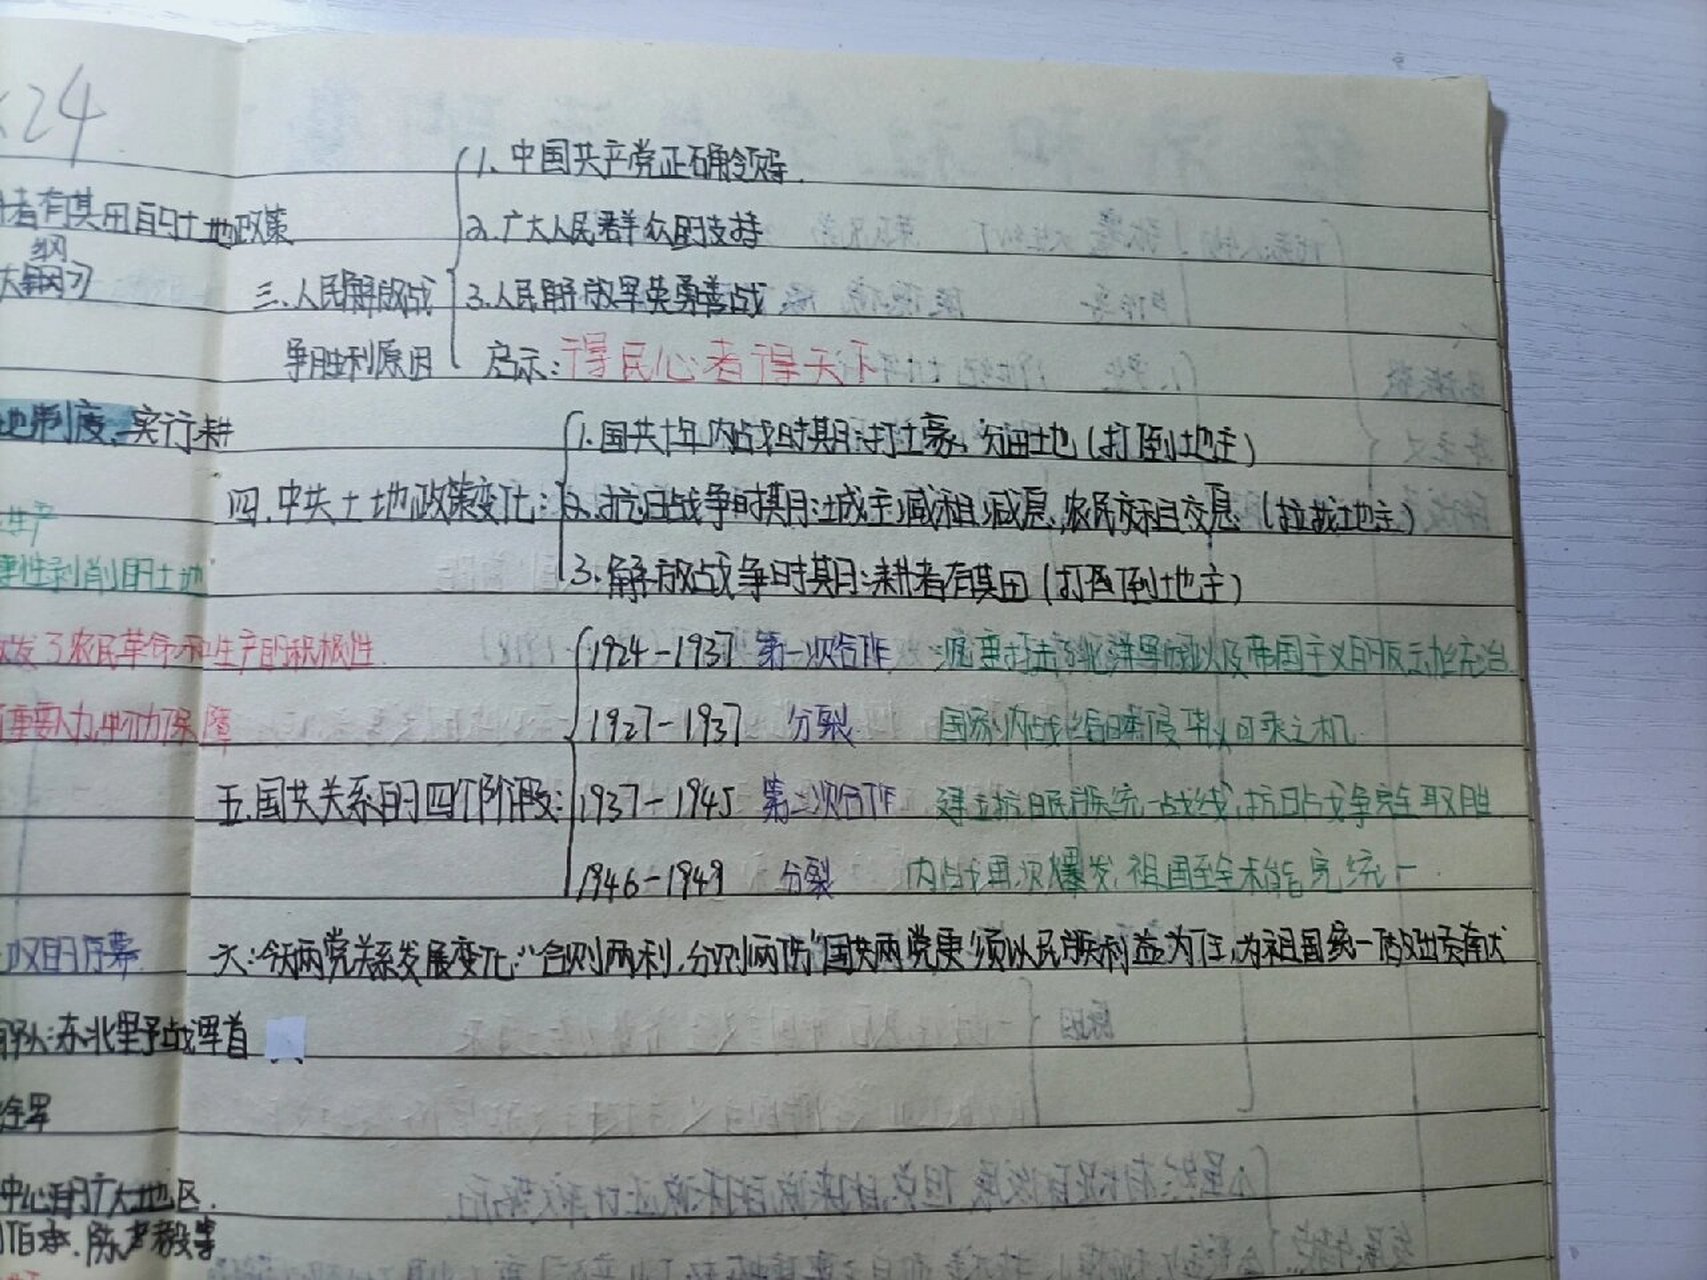 24
者有其田的土地政策
纲
大纲》
地制度,实行耕
生产
剥削的土地
发了农民革命和生产的积极性
重要人力,物力保障
序幕
东北野战军首
中心的广大地区.
伯承.陈毅等
三.人民解放战
争胜利原因
1.中国共产党正确领导.
2.广大人民群众的支持
3.人民解放军英勇善战
启示:得民心者得天下
四.中共土地政策变化:
1.国共十年内战时期:打土豪、分田地(打倒地主)
2.抗日战争时期:减租减息,农民交租交息(拉拢地主)
3.解放战争时期:耕者有其田(打倒地主)
五.国共关系的四个阶段:
1924-1937 第一次合作 沉重打击了北洋军阀以及帝国主义的反动统治
1927-1937 分裂 国家内战给日寇侵华以可乘之机
1937-1945 第二次合作 建立抗日民族统一战线,抗日战争完全取胜
1946-1949 分裂 内战再次爆发,祖国至今未能完统一.
六:今天两党关系发展变化:"合则两利,分则两伤"国共两党更须以民族利益为任,为祖国统一做出贡献